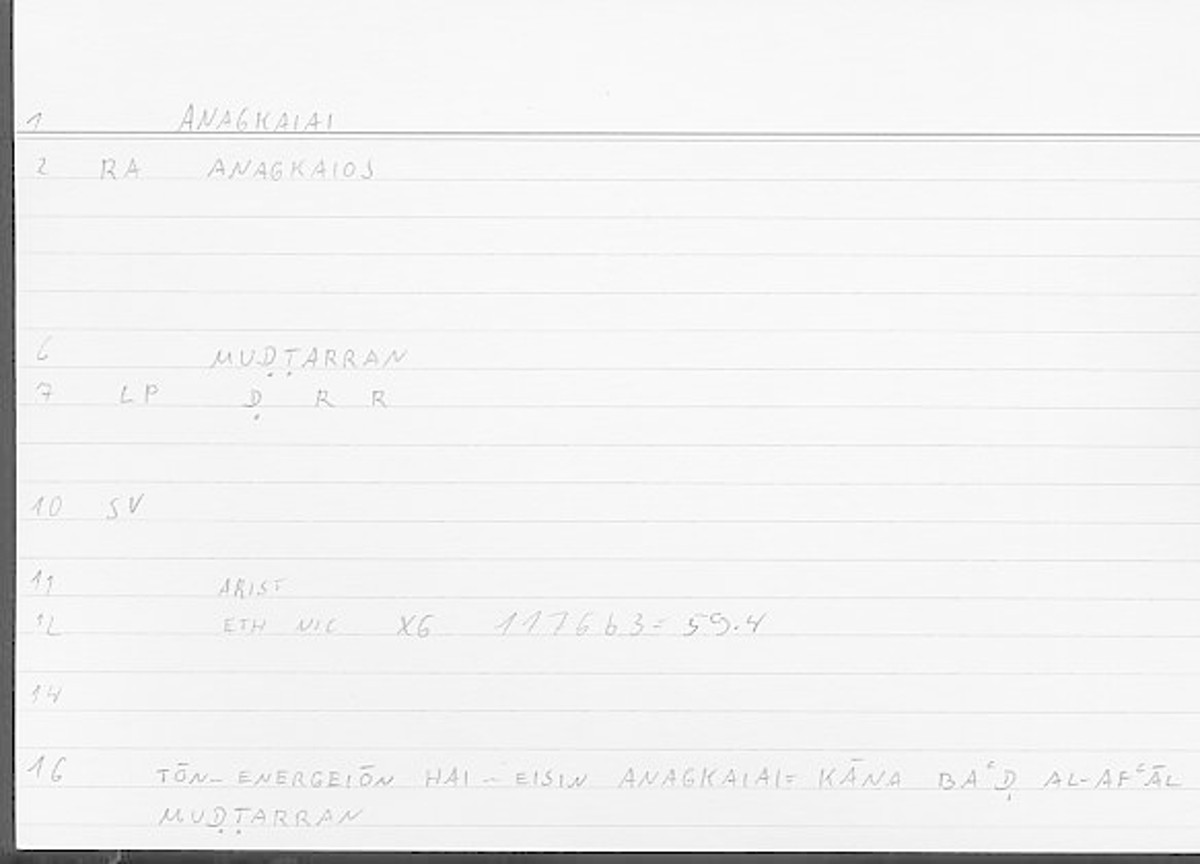 1 ANAGKAIAI
2 RA ANAGKAIOS
6 MUḌṬARRAN
7 LP Ḍ R R
10 SV
11 ARIST
12 ETH NIC X6 1176b3= 59.4
14
16 TŌN- ENERGEIŌN HAI - EISIN ANAGKAIAI= KĀNA BAʿḌ AL-AFʿĀL
MUḌṬARRAN